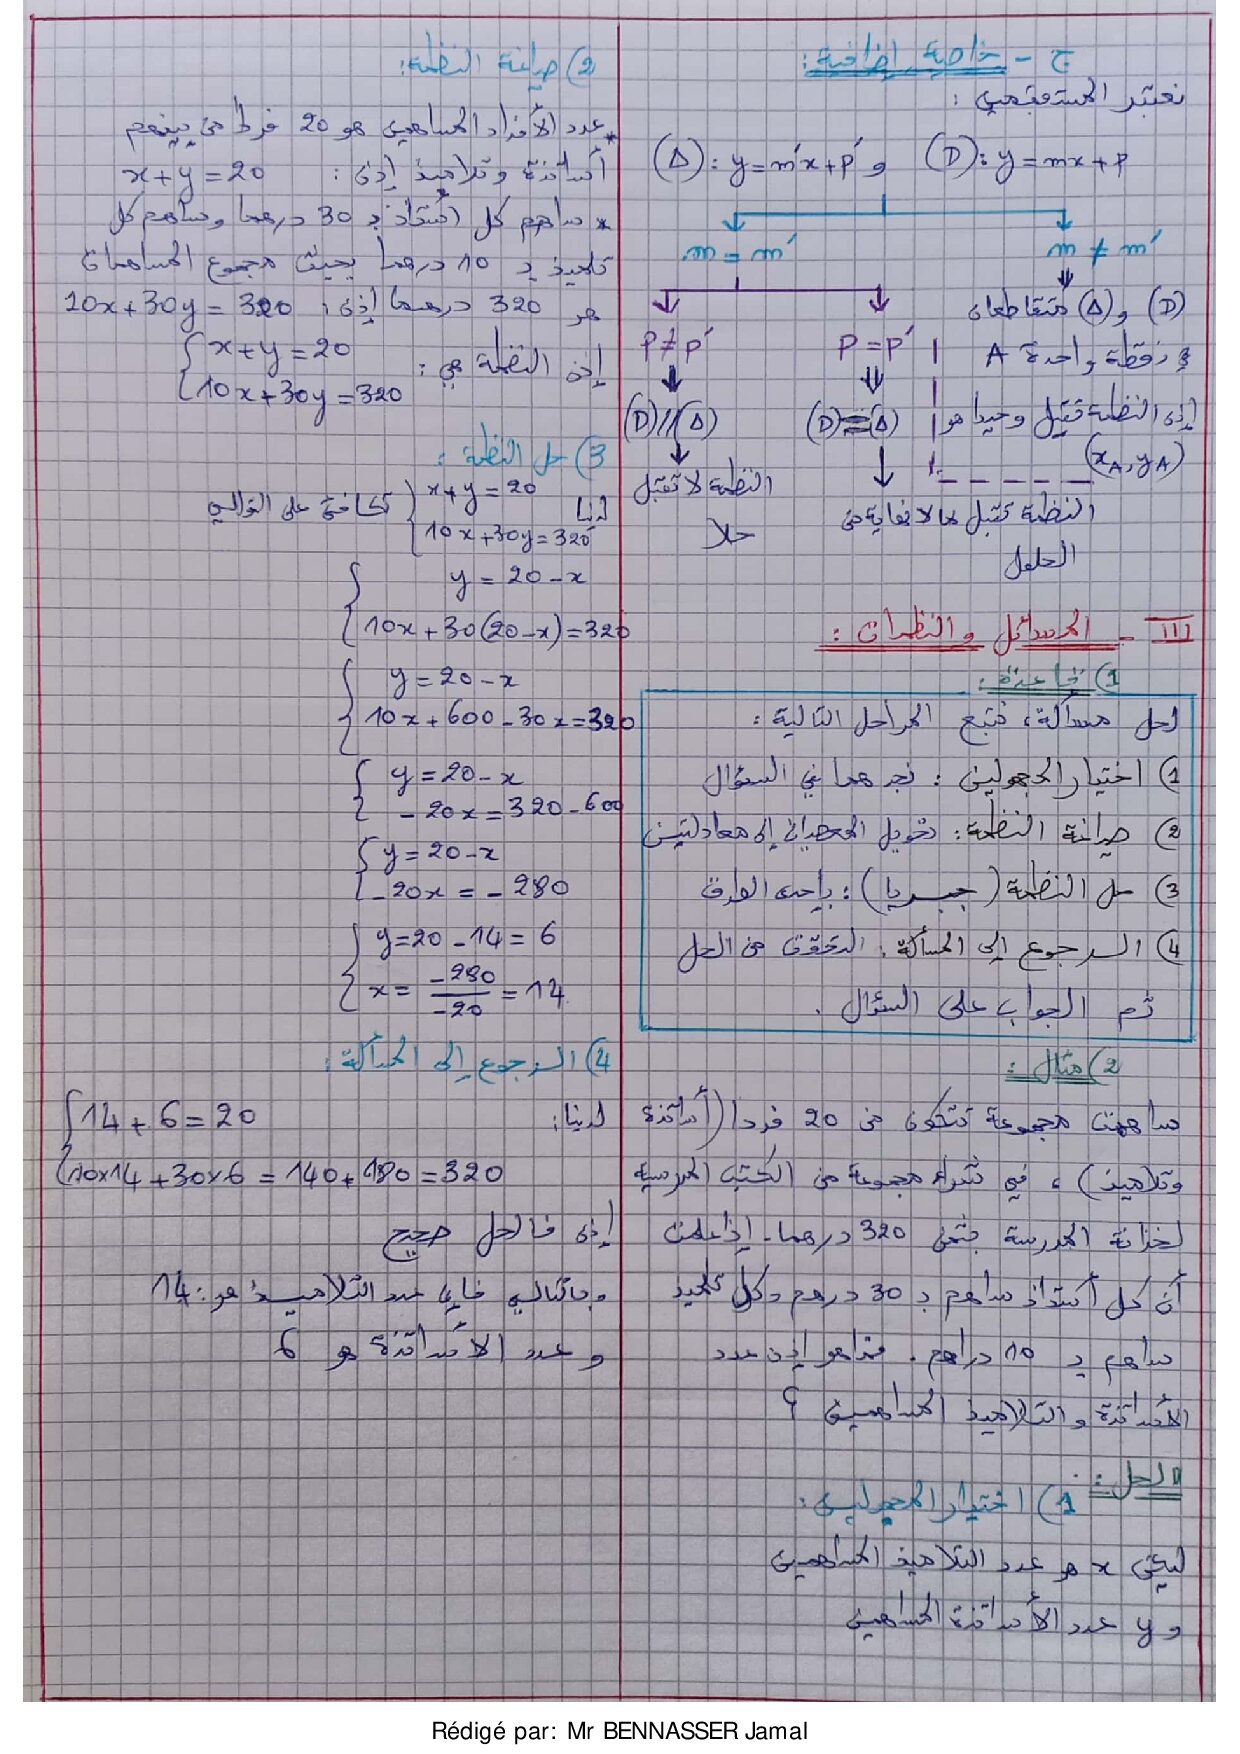 ج - خاصية إضافية:
نعتبر المستقيمين :
(D): y = mx + p و (Δ): y = m'x + p'
m = m' m ≠ m'
(D) و (Δ) متقاطعان
p ≠ p' p = p' في نقطة واحدة A
(D)//(Δ) (D)=(Δ) إذن النظمة تقبل حلا وحيدا هو
(xA, yA)
النظمة لا تقبل حلا
النظمة تقبل ما لا نهاية من
الحلول
III - المسائل والنظمات :
1) قاعدة :
لحل مسألة، نتبع المراحل التالية :
1) اختيار المجهولين : نجدهما في السؤال
2) صياغة النظمة: تحويل المعطيات إلى معادلتين
3) حل النظمة (جبريا) : بإحدى الطرق
4) الرجوع إلى المسألة : التحقق من الحل
ثم الجواب على السؤال .
2) مثال :
ساهمت مجموعة تتكون من 20 فردا (أساتذة
وتلاميذ) ، في شراء مجموعة من الكتب المدرسية
لخزانة المدرسة بثمن 320 درهما. إذا علمت
أن كل أستاذ ساهم بـ 30 درهم وكل تلميذ
ساهم بـ 10 دراهم . فما هو إذن عدد
الأساتذة و التلاميذ المساهمين ؟
الحل :
1) اختيار المجهولين :
ليكن x هو عدد التلاميذ المساهمين
و y عدد الأساتذة المساهمين
2) صياغة النظمة:
* عدد الأفراد المساهمين هو 20 فردا من بينهم
أساتذة وتلاميذ إذن : x + y = 20
* ساهم كل أستاذ بـ 30 درهما وساهم كل
تلميذ بـ 10 درهما بحيث مجموع المساهمات
هو 320 درهما إذن : 10x + 30y = 320
إذن النظمة هي : { x + y = 20
10x + 30y = 320
3) حل النظمة :
لدينا { x + y = 20
10x + 30y = 320 تكافئ على التوالي
{ y = 20 - x
10x + 30(20 - x) = 320
{ y = 20 - x
10x + 600 - 30x = 320
{ y = 20 - x
-20x = 320 - 600
{ y = 20 - x
-20x = -280
{ y = 20 - 14 = 6
x = -280/-20 = 14
4) الرجوع إلى المسألة :
لدينا: { 14 + 6 = 20
10x14 + 30x6 = 140 + 180 = 320
إذن فالحل صحيح
وبالتالي فإن عدد التلاميذ هو : 14
و عدد الأساتذة هو 6
Rédigé par: Mr BENNASSER Jamal